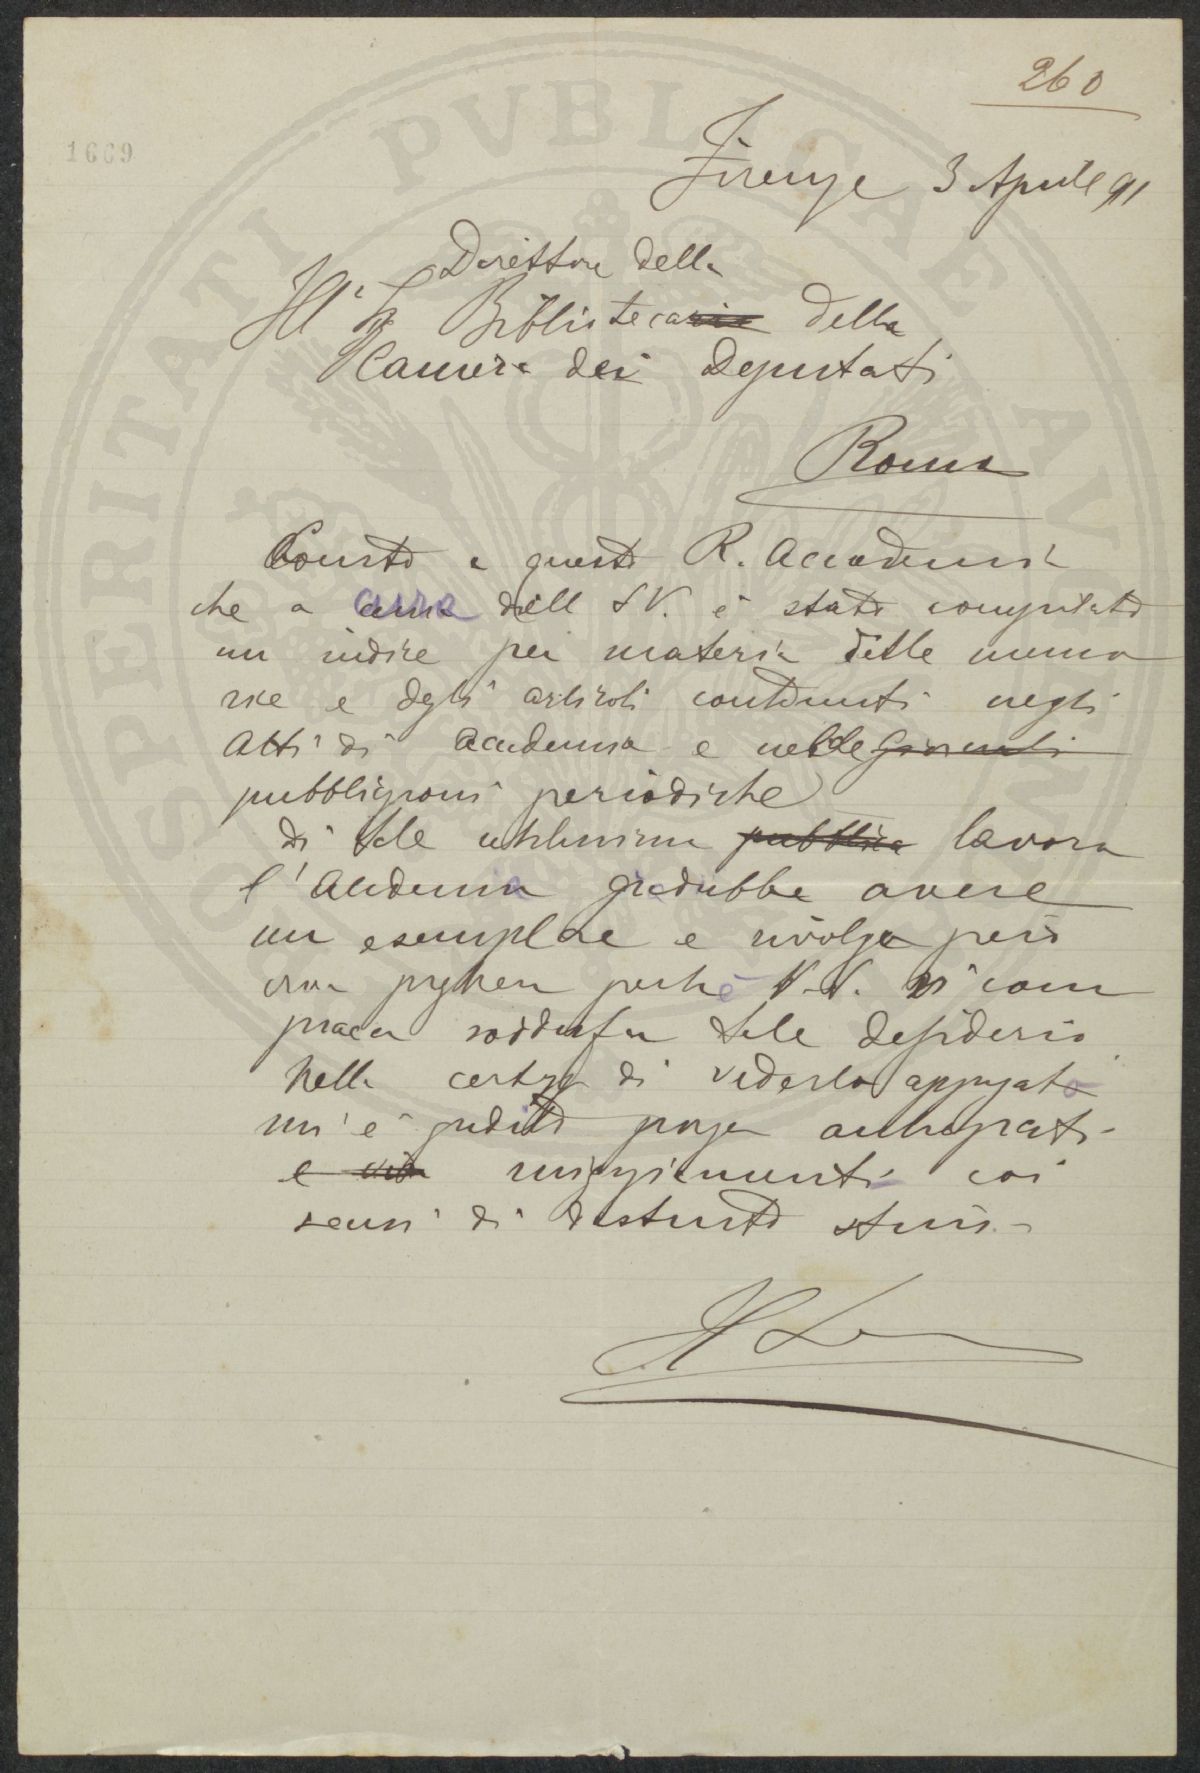 260
1669
Firenze 3 Aprile 91
Direttore della
Ill. Sg Bibliotecario della
Camera dei Deputati
Roma
Consta a questa R. Accademia
che a cura dell S V. è stato compilato
un indice per materia delle memo
rie e degli articoli contenuti negli
Atti di Accademia e nelle Giornali
pubblicazioni periodiche
di tale utilissimo pubblica lavoro
l'Accademia gradirebbe avere
un esemplare e rivolge però
viva preghiera perché V.S. si com
piaccia soddisfare tale desiderio
Nella certezza di vederlo appagato
mi è gradito porger anticipati
e vivi ringraziamenti coi
sensi di distinta stima